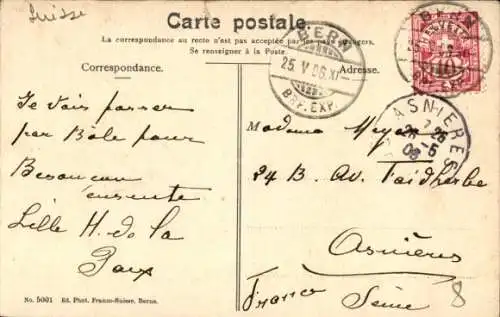 Suisse
Carte postale.
La correspondance au recto n'est pas acceptée par tous les pays étrangers.
Se renseigner à la Poste.
Correspondance.
Adresse.
BERN
25. V. 06. XI
BRF. EXP.
BERN
10
BRF. EXP.
ASNIERES
7 25
26 -5
06
Je vais passer
par Bâle pour
Besançon
ensuite
Lille H. de la
Paix
Madame Meyer
24 B. Av. Faidherbe
Asnières
Seine
France
8
No. 5001 Ed. Phot. Franco-Suisse, Berne.